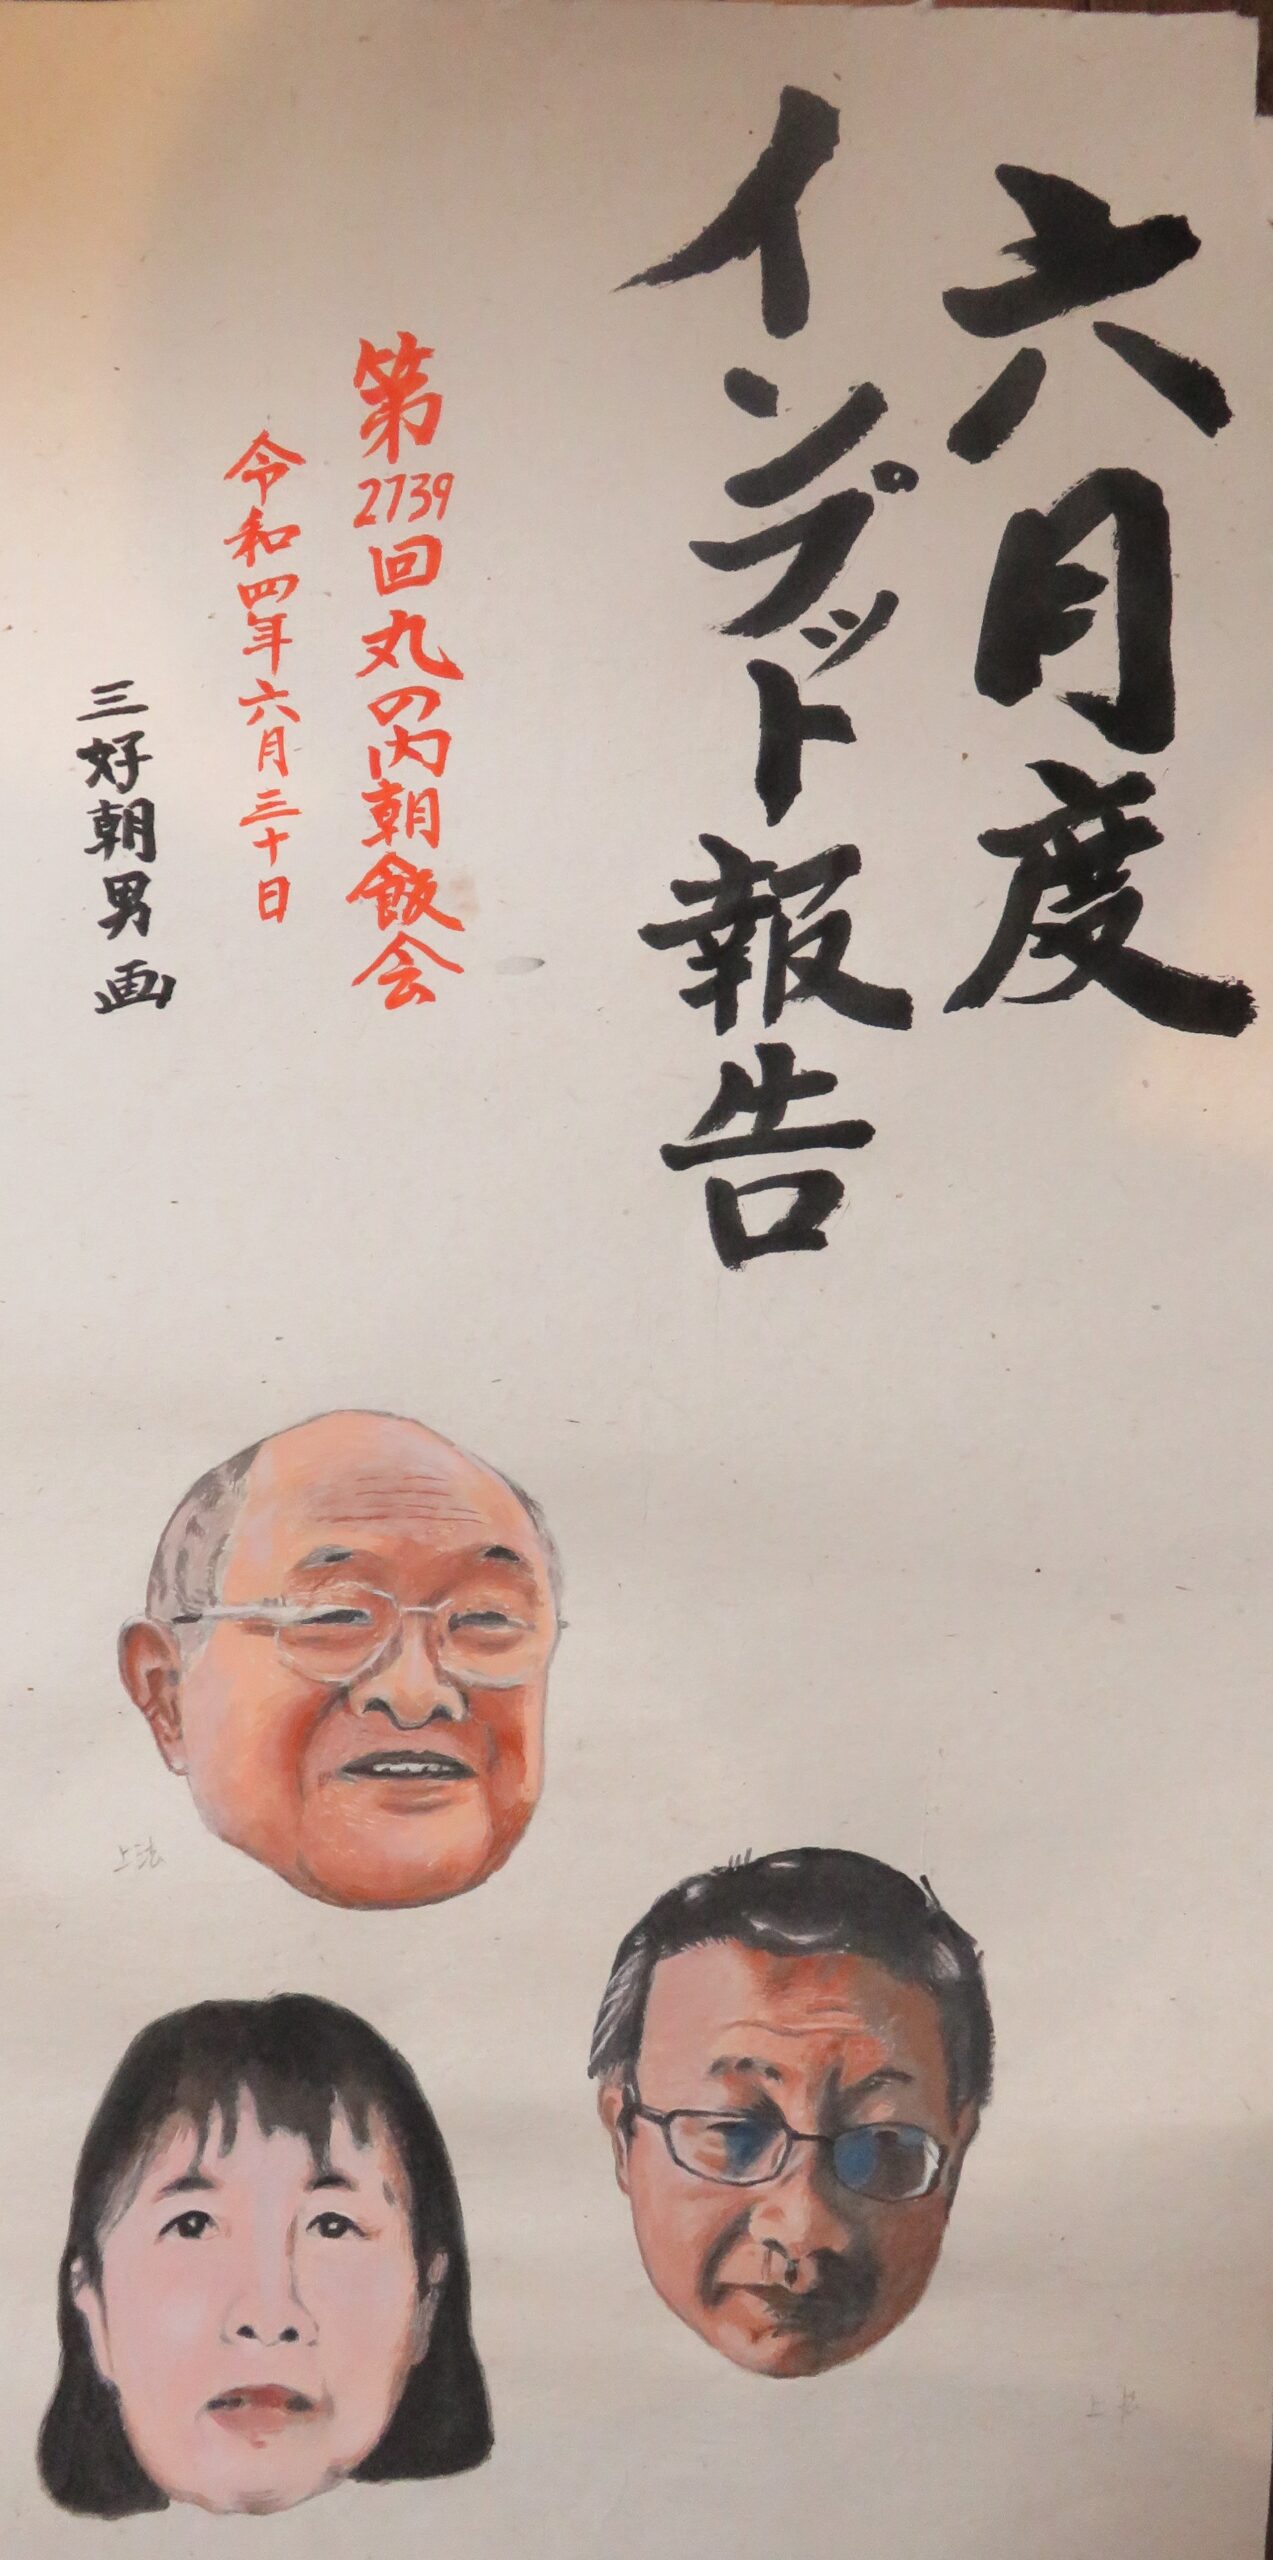 六月度
インプット報告
第2739回丸の内朝飯会
令和四年六月三十日
三好朝男画
上法